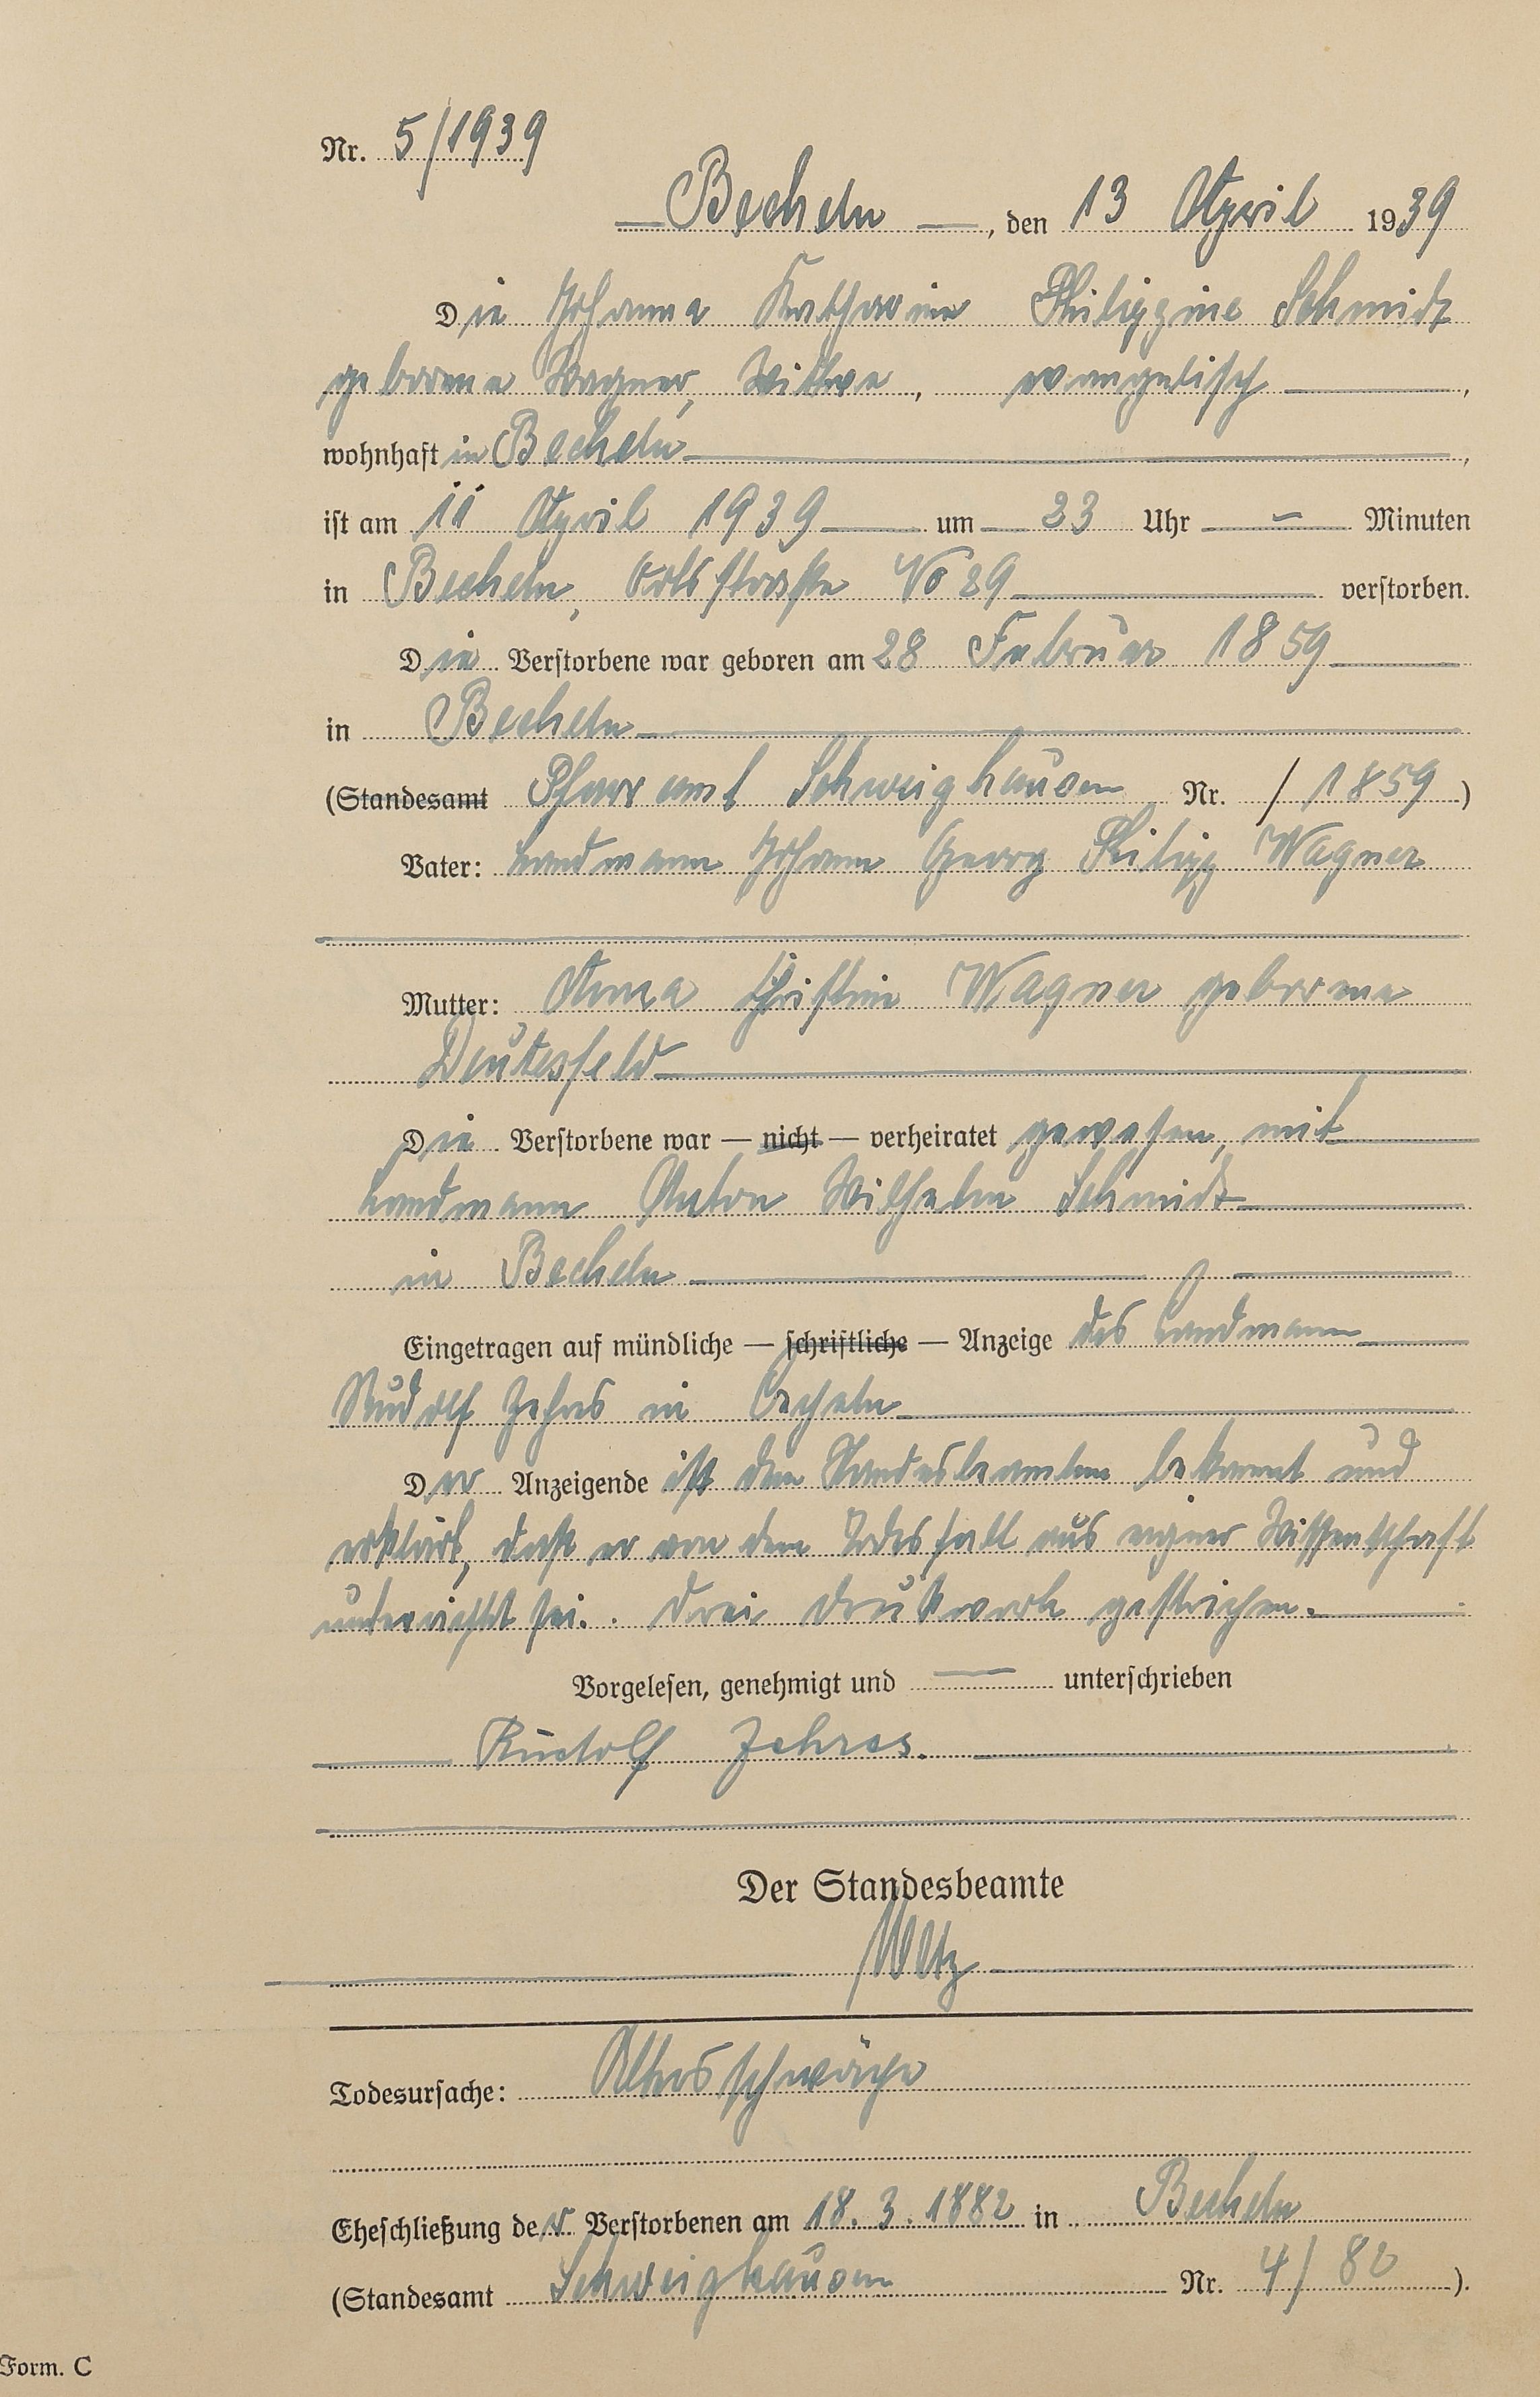 Nr. 5/1939
Becheln, den 13 April 1939
Die Johanna Katharine Philippine Schmidt
geborene Wagner, Witwe, evangelisch,
wohnhaft in Becheln,
ist am 11 April 1939 um 23 Uhr – Minuten
in Becheln, Ortsstraße No 29 verstorben.
Die Verstorbene war geboren am 28 Februar 1859
in Becheln
(Standesamt Pfarramt Schweighausen Nr. / 1859)
Vater: Landmann Johann Georg Philipp Wagner
Mutter: Anna Christine Wagner geborene
Deutesfeld
Die Verstorbene war — nicht — verheiratet gewesen, mit
Landmann Anton Wilhelm Schmidt
in Becheln
Eingetragen auf mündliche — schriftliche — Anzeige des Landmann
Rudolf Zehres in Becheln
Der Anzeigende ist dem Standesbeamten bekannt und
erklärt, daß er von dem Todesfall aus eigner Wissenschaft
unterrichtet sei. Drei Druckworte gestrichen.
Vorgelesen, genehmigt und — unterschrieben
Rudolf Zehres.
Der Standesbeamte
Metz
Todesursache: Altersschwäche
Eheschließung der Verstorbenen am 18. 3. 1882 in Becheln
(Standesamt Schweighausen Nr. 4/82).
Form. C